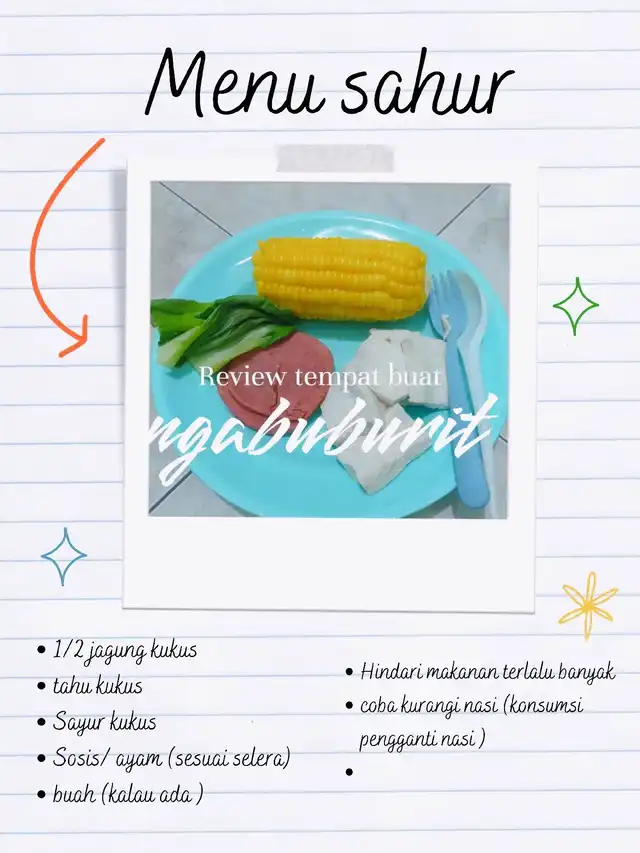 Menu sahur
Review tempat buat
ngabuburit
• 1/2 jagung kukus
• tahu kukus
• Sayur kukus
• Sosis/ ayam (sesuai selera)
• buah (kalau ada )
• Hindari makanan terlalu banyak
• coba kurangi nasi (konsumsi
pengganti nasi )
•